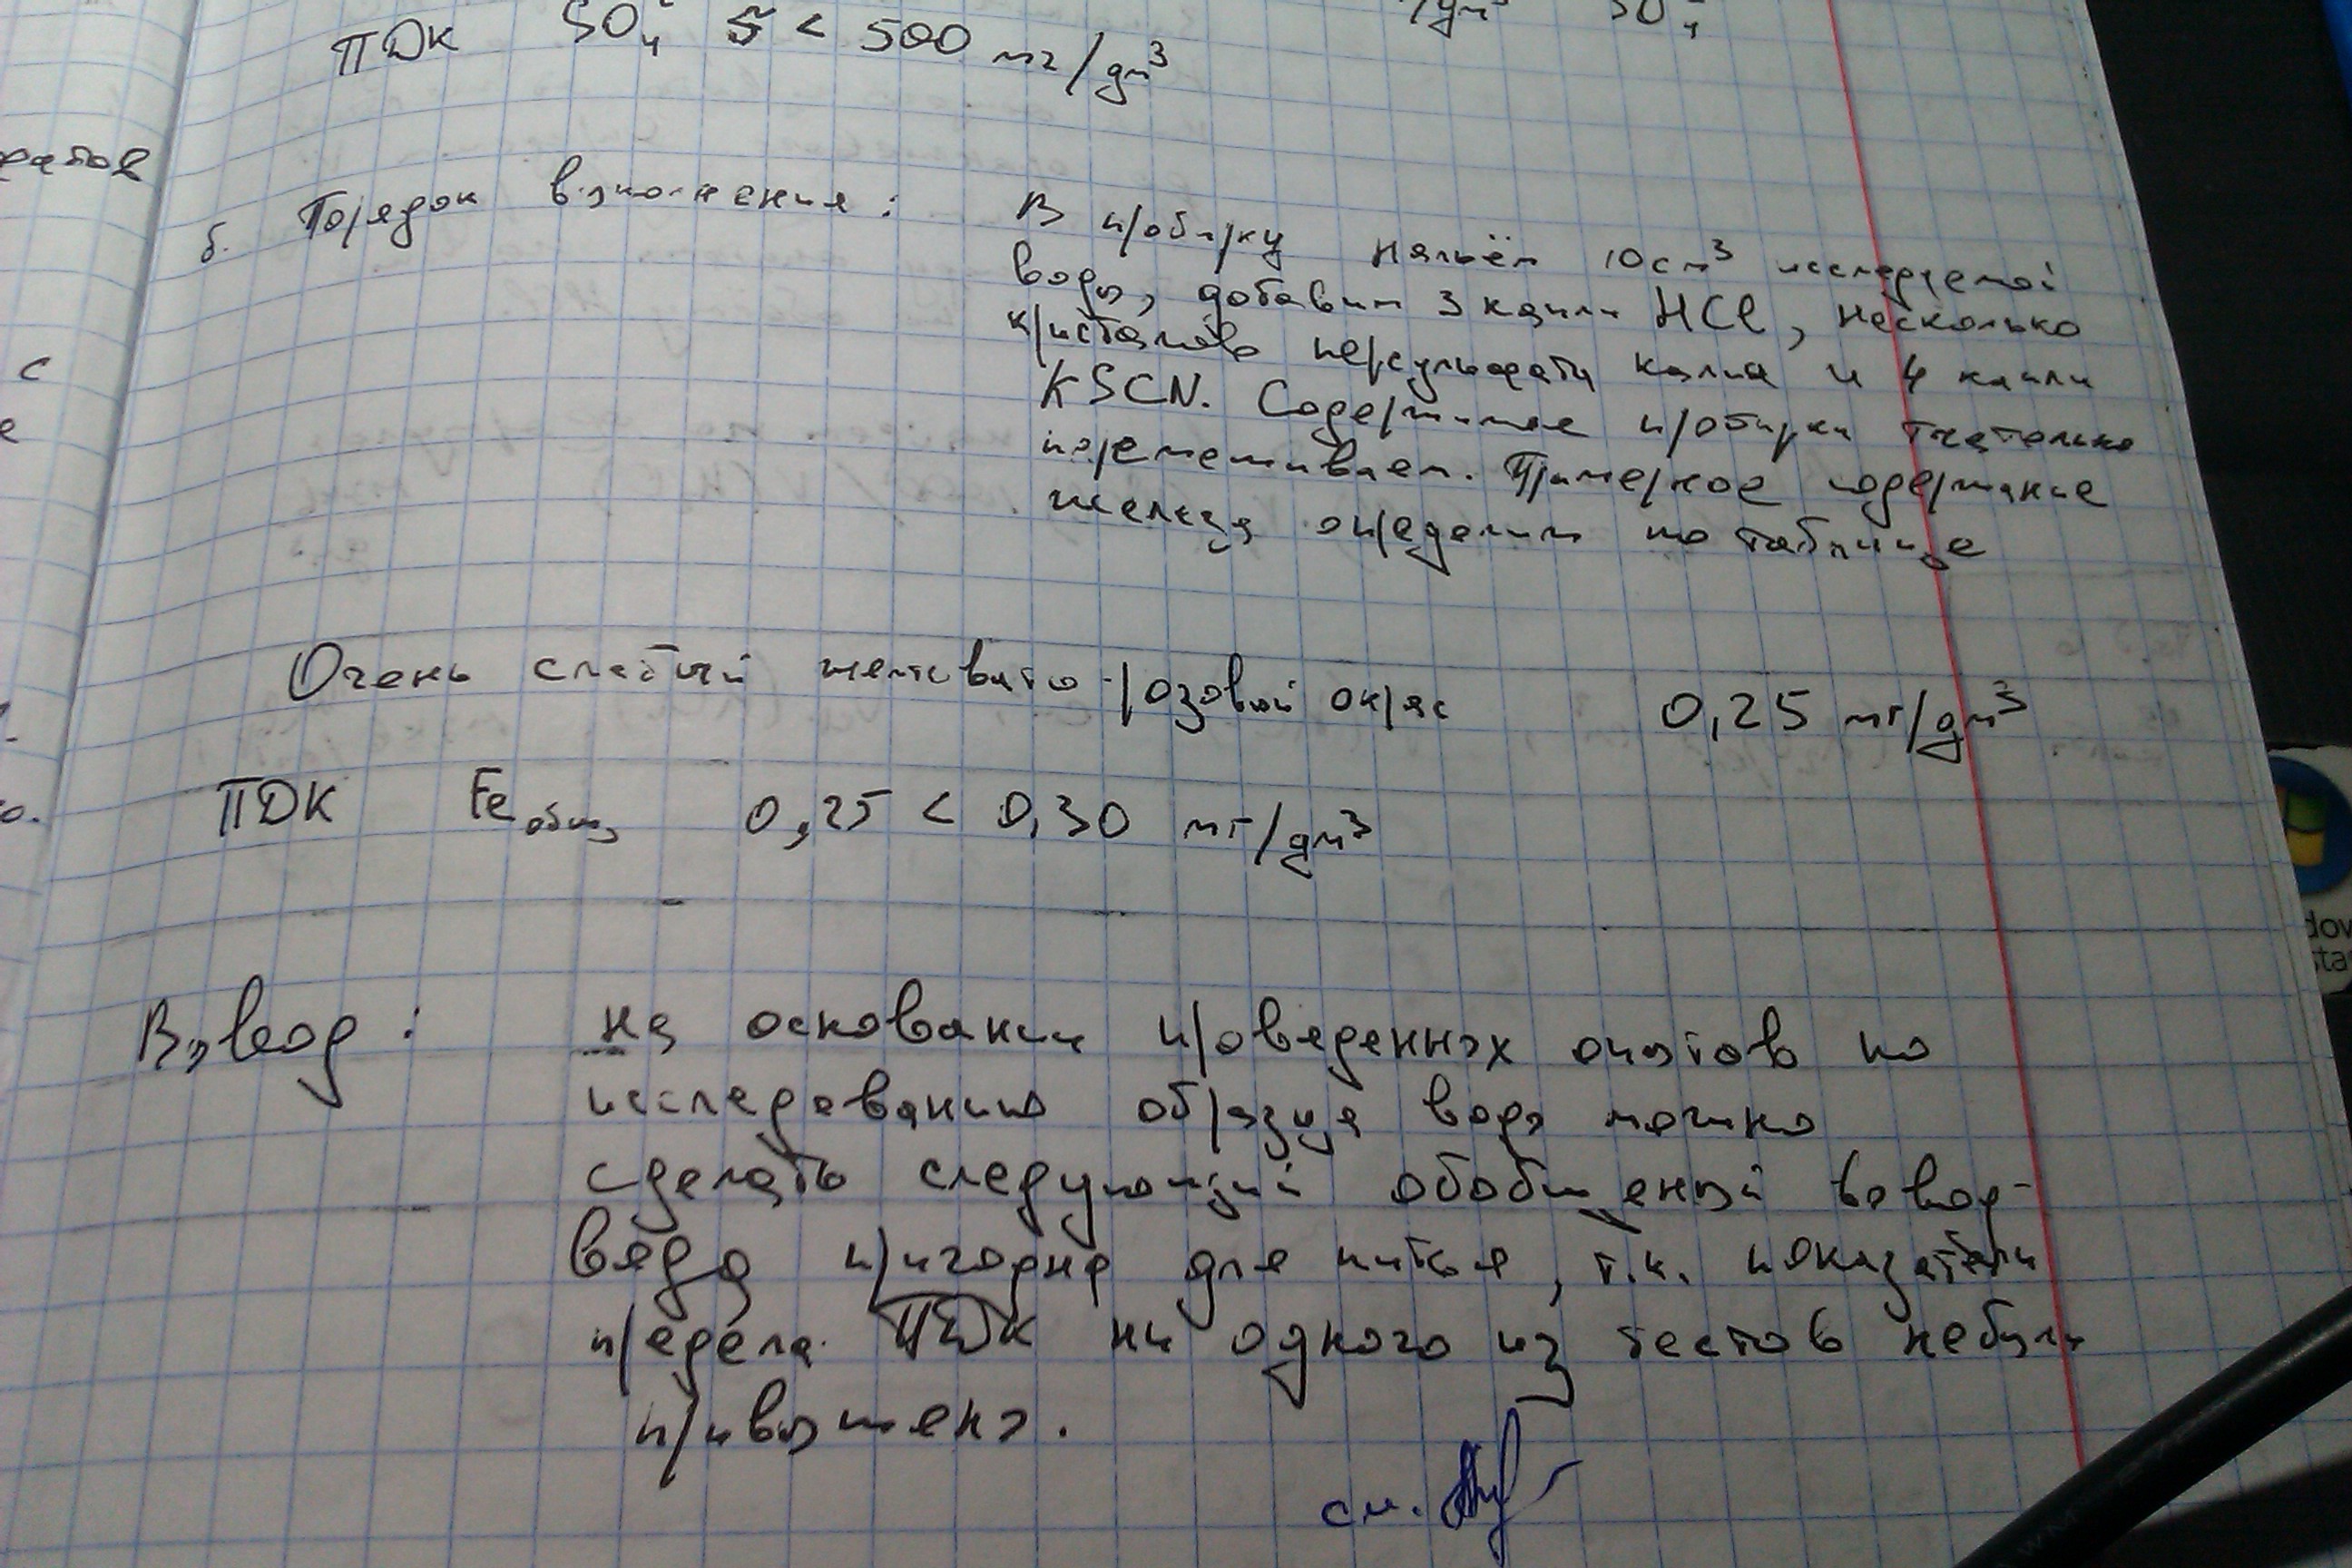 ПДК SO₄ 5 < 500 мг/дм³
ратов
б. Порядок выполнения:
В пробирку нальём 10 см³ исследуемой
воды, добавим 3 капли HCl, несколько
кристалов персульфата калия и 4 капли
KSCN. Содержимое пробирки тщательно
перемешиваем. Примерное содержание
железа определим по таблице
с
е
Очень слабый желтовато-розовый окрас 0,25 мг/дм³
ПДК Fe общ 0,25 < 0,30 мг/дм³
Вывод: на основании проведенных опытов по
исследованию образца воды можно
сделать следующий обобщенный вывод-
вода пригодна для питья, т.к. показатели
предела ПДК ни одного из тестов небыли
привышены.
см.